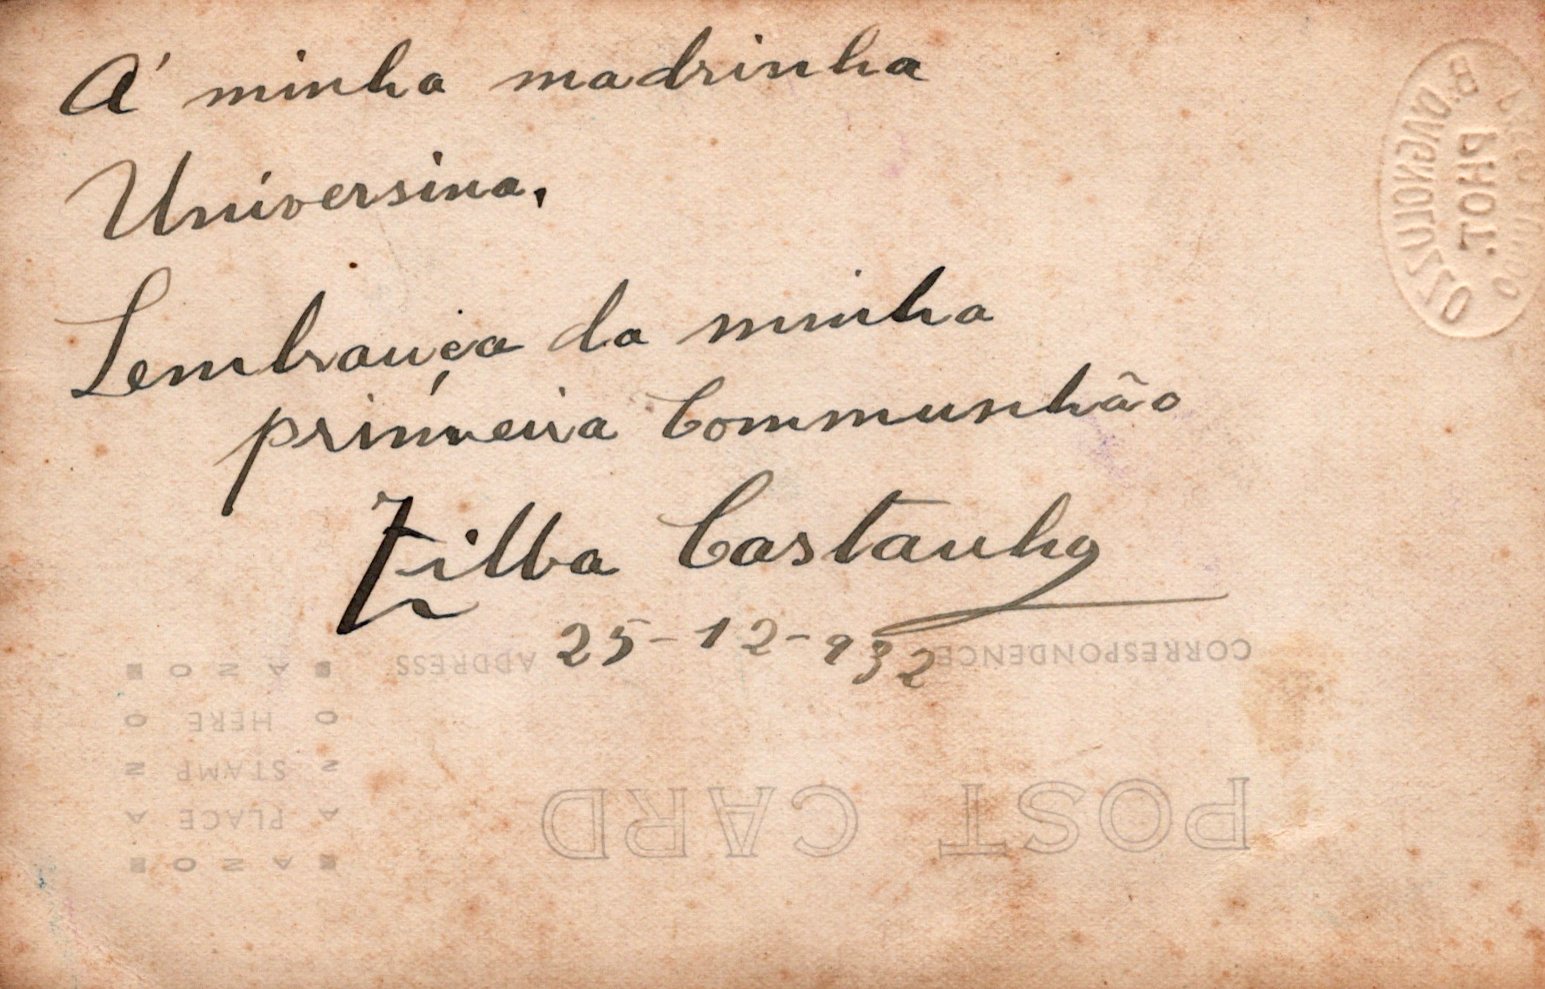 Á minha madrinha
Universina,
Lembrança da minha
primeira Communhão
Zilba Castanho
25-12-932
CORRESPONDENCE
ADDRESS
POST CARD
PLACE
STAMP
HERE
B. OVIGNOLUZZO
PHOT.